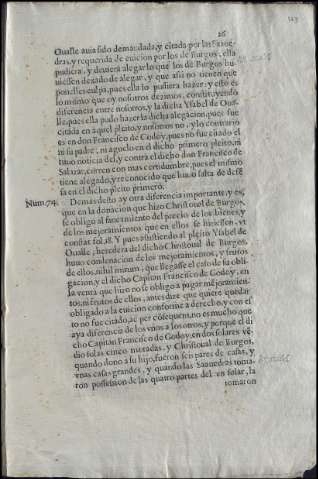 26
Oualle auia sido demandada, y citada por las Saaue-
dras, y requerida de euicion por los de Burgos, ella
pudiera, y deuiera alegar lo que los de Burgos hu-
uiessen dexado de alegar, y que assi no tienen que
ponelles culpa, pues ella lo pudiera hazer: y esto es
lo mismo que oy nosotros dezimos, constituyendo
diferencia entre nosotros, y la dicha Ysabel de Oua-
lle, pues ella pudo hazer la dicha alegacion, pues fue
citada en aquel pleito, y nosotros no, y lo contrario
es en don Francisco de Godoy, pues no fue citado el
ni su padre, ni aguelo en el dicho primero pleito, ni
tuuo noticia del, y contra el dicho don Francisco de
Salazar, corren con mas certidumbre, pues el mismo
tiene alegado, y reconocido que huuo falta de defe
sa en el dicho pleito primero.
Num. 74. Demas desto ay otra diferencia importante, y es,
que en la donacion que hizo Christoual de Burgos,
se obligo al saneamiento del precio de los bienes, y
de los mejoramientos que en ellos se hiziessen, vt
constat fol. 18. Y pues assistiendo al pleito Ysabel de
Oualle, heredera del dicho Christoual de Burgos,
huuo condenacion de los mejoramientos, y frutos
de ellos, nihil mirum, que llegasse el caso de su obli
gacion, y el dicho Capitan Francisco de Godoy, en
la venta que hizo no se obligo a pagar mejoramien-
tos, ni frutos de ellos, antes dize que quiere quedar
obligado a la euicion conforme a derecho, y con es
to no fue citado, ac per consequens, no es mucho que
aya diferencia de los vnos a los otros, y porque el di
cho Capitan Francisco de Godoy, en dos solares vē
dio solas cinco moradas, y Christoual de Burgos,
quando dono a su hijo, fueron seis pares de casas, y
vnas casas grandes, y quando las Saauedras toma-
ron possession de las quatro partes del vn solar, la
tomaron